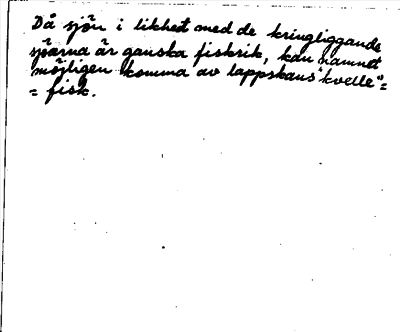 Då sjön i likhet med de kringliggande
sjöarna är ganska fiskrik, kan namnet
möjligen komma av lappskans "kvelle" =
= fisk.